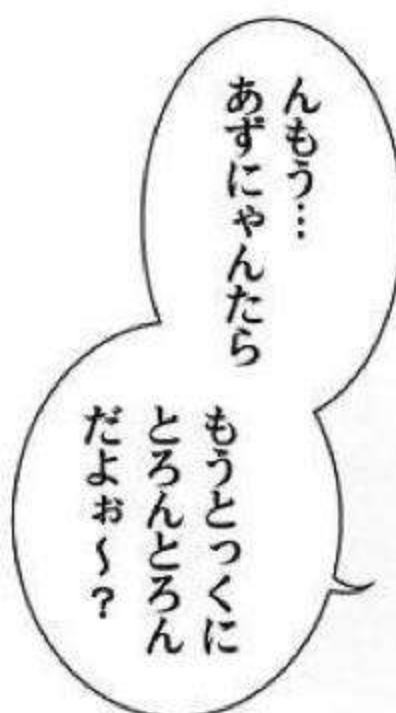 んもう…
あずにゃんたら
もうとっくに
とろんとろん
だよぉ～？